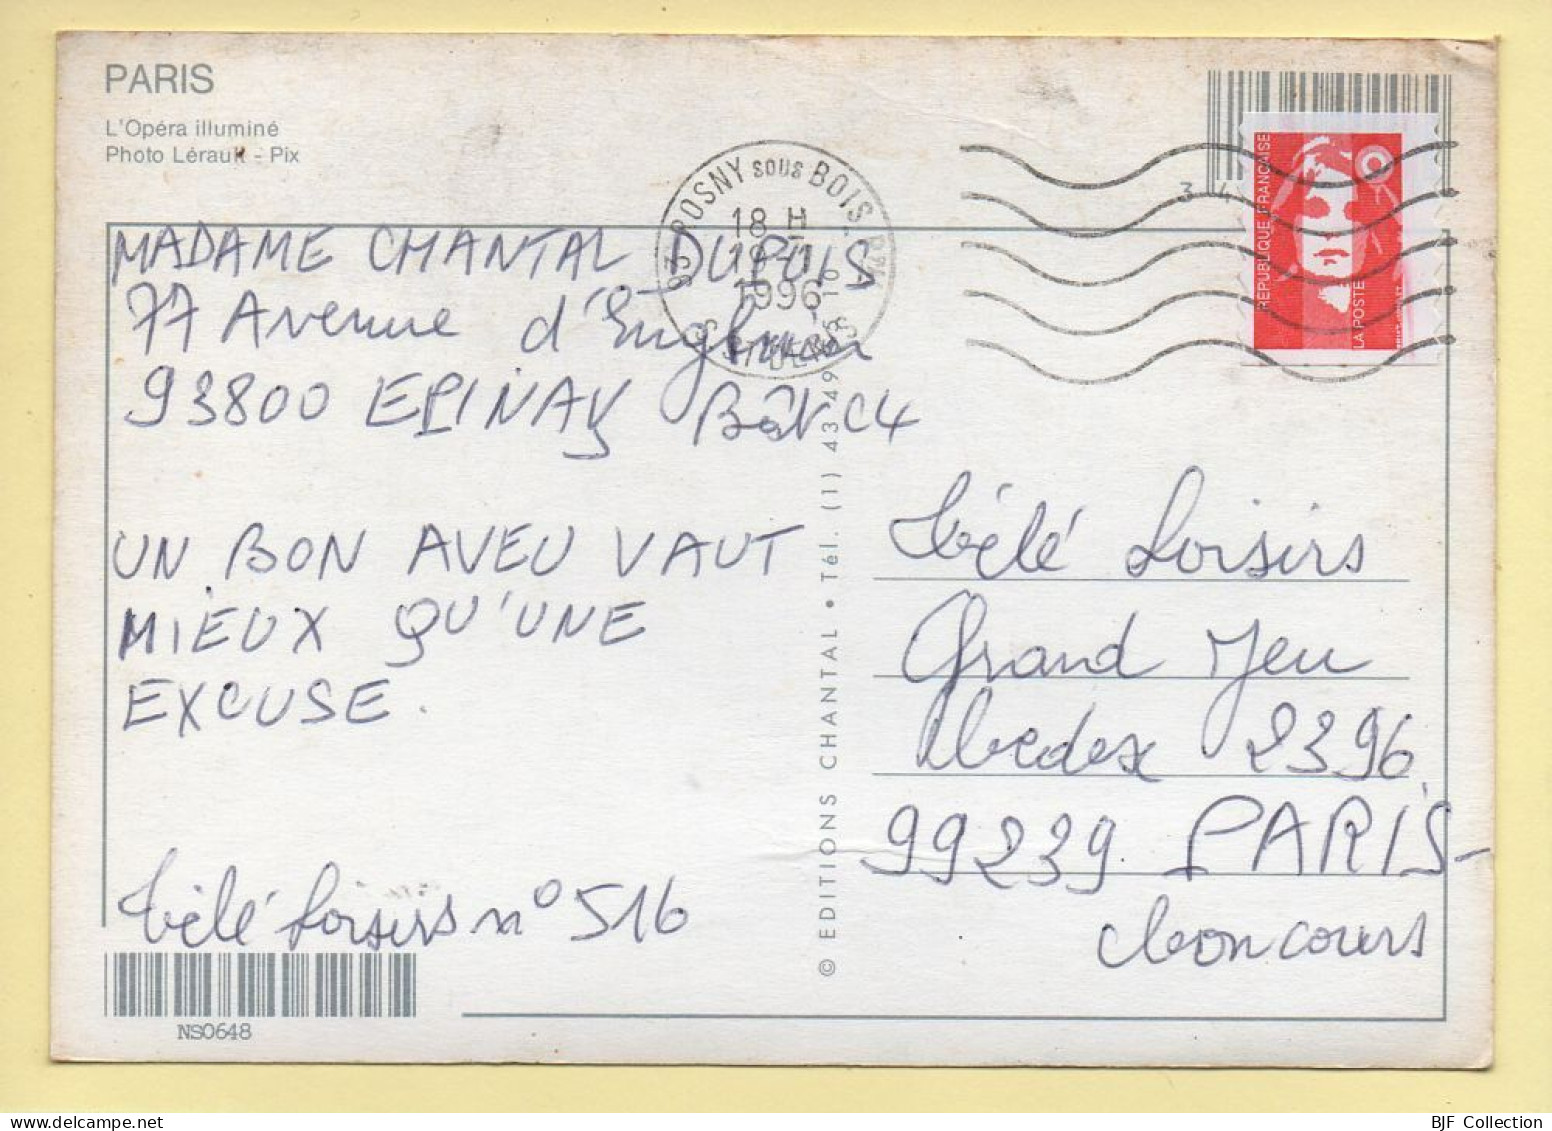 PARIS
L'Opéra illuminé
Photo Lérault - Pix
93 ROSNY sous BOIS
18 H
1996
ST DENIS
3 4
RÉPUBLIQUE FRANÇAISE
LA POSTE
MADAME CHANTAL DUPUIS
77 Avenue d'Enghien
93800 EPINAY Bât C4
UN BON AVEU VAUT
MIEUX QU'UNE
EXCUSE.
Télé Loisirs n° 516
NS0648
© EDITIONS CHANTAL • Tél. (1) 43 49
Télé Loisirs
Grand Jeu
Cedex 2396
99239 PARIS-
Concours
BJF Collection